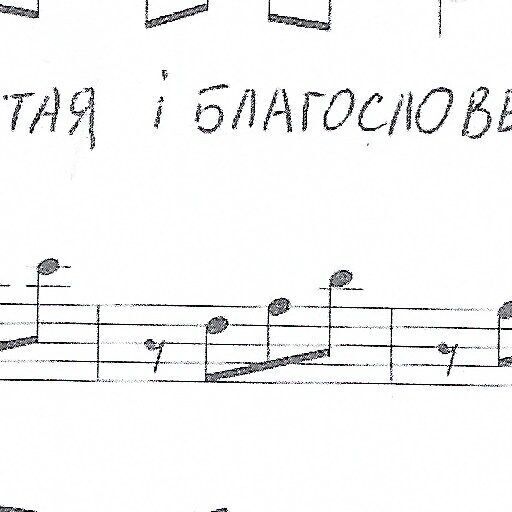 ТАЯ і БЛАГОСЛОВЕ